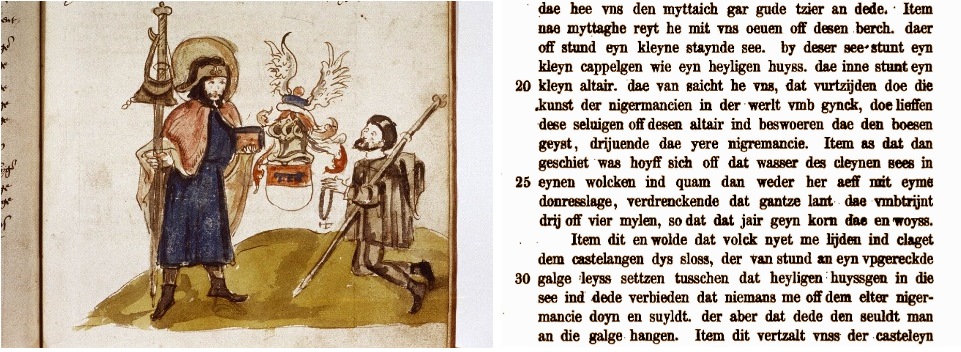 dae hee vns den myttaich gar gude tzier an dede. Item
nae myttaghe reyt he mit vns oeuen off desen berch. daer
off stund eyn kleyne staynde see. by deser see stunt eyn
kleyn cappelgen wie eyn heyligen huyss. dae inne stunt eyn
20 kleyn altair. dae van saicht he vns, dat vurtzijden doe die
kunst der nigermancien in der werlt vmb gynck, doe lieffen
dese seluigen off desen altair ind beswoeren dae den boesen
geyst, drijuende dae yere nigremancie. Item as dat dan
geschiet was hoyff sich off dat wasser des cleynen sees in
25 eynen wolcken ind quam dan weder her aeff mit eyme
donresslage, verdrenckende dat gantze lant dae vmbtrijnt
drij off vier mylen, so dat dat jair geyn korn dae en woyss.
Item dit en wolde dat volck nyet me lijden ind claget
dem castelangen dys sloss, der van stund an eyn vpgereckde
30 galge leyss settzen tusschen dat heyligen huyssgen in die
see ind dede verbieden dat niemans me off dem elter niger-
mancie doyn en suyldt. der aber dat dede den seuldt man
an die galge hangen. Item dit vertzalt vnss der casteleyn